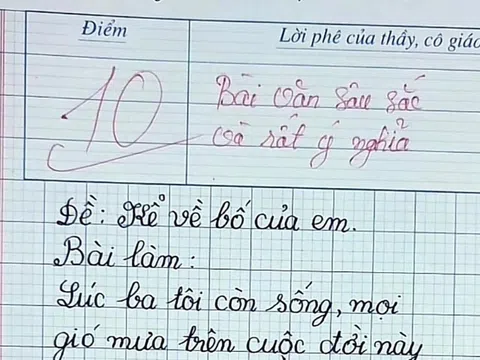 Điểm
Lời phê của thầy, cô giáo
10
Bài văn sâu sắc
và rất ý nghĩa
Đề: Kể về bố của em.
Bài làm:
Lúc ba tôi còn sống, mọi
gió mưa trên cuộc đời này